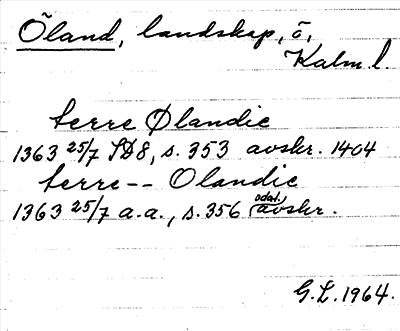 Öland, landskap, ö,
Kalm. l.
terre Ølandie
1363 25/7 SD8, s. 353 avskr. 1404
terre-- Olandie
1363 25/7 a.a., s. 356 odat. avskr.
G.L. 1964.